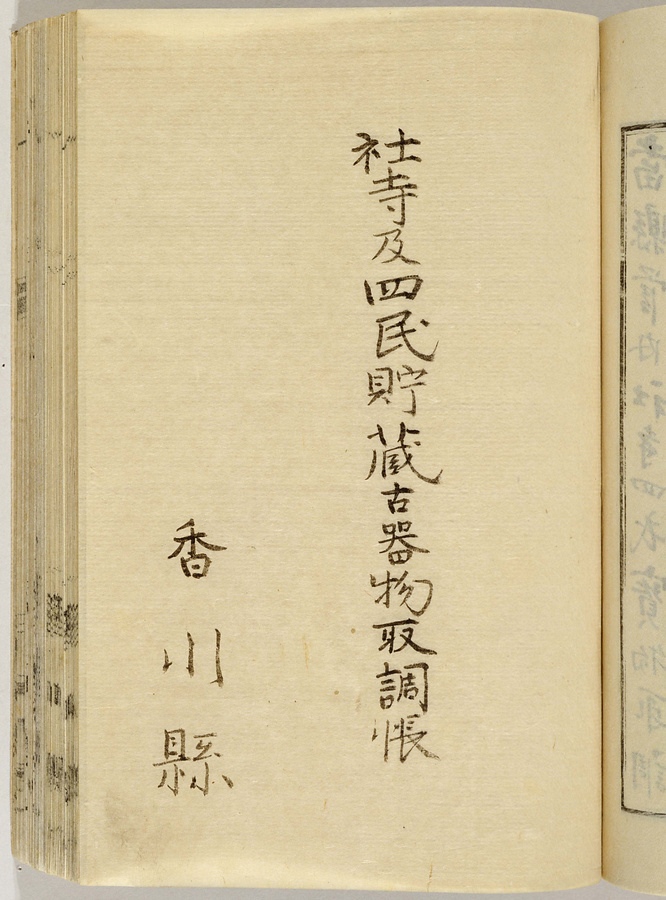 社寺及四民貯蔵古器物取調帳
香川縣